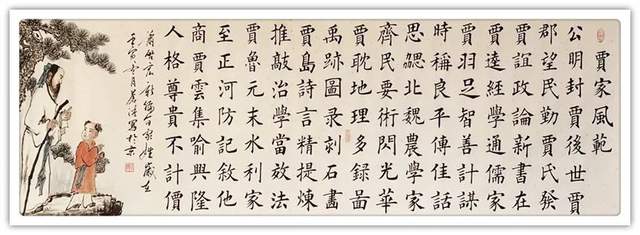 賈家風範
公明封賈後世賈
郡望民勤賈氏發
賈誼政論新書在
賈逵經學通儒家
賈羽足智善計謀
時稱良平傳佳話
思勰北魏農學家
齊民要術閃光華
賈耽地理多錄啚
禹跡圖錄刻石畵
賈島詩言精提煉
推敲治學當效法
賈魯元末水利家
至正河防記敘他
商賈雲集喻興隆
人格尊貴不計價
壬寅 月 寫於京